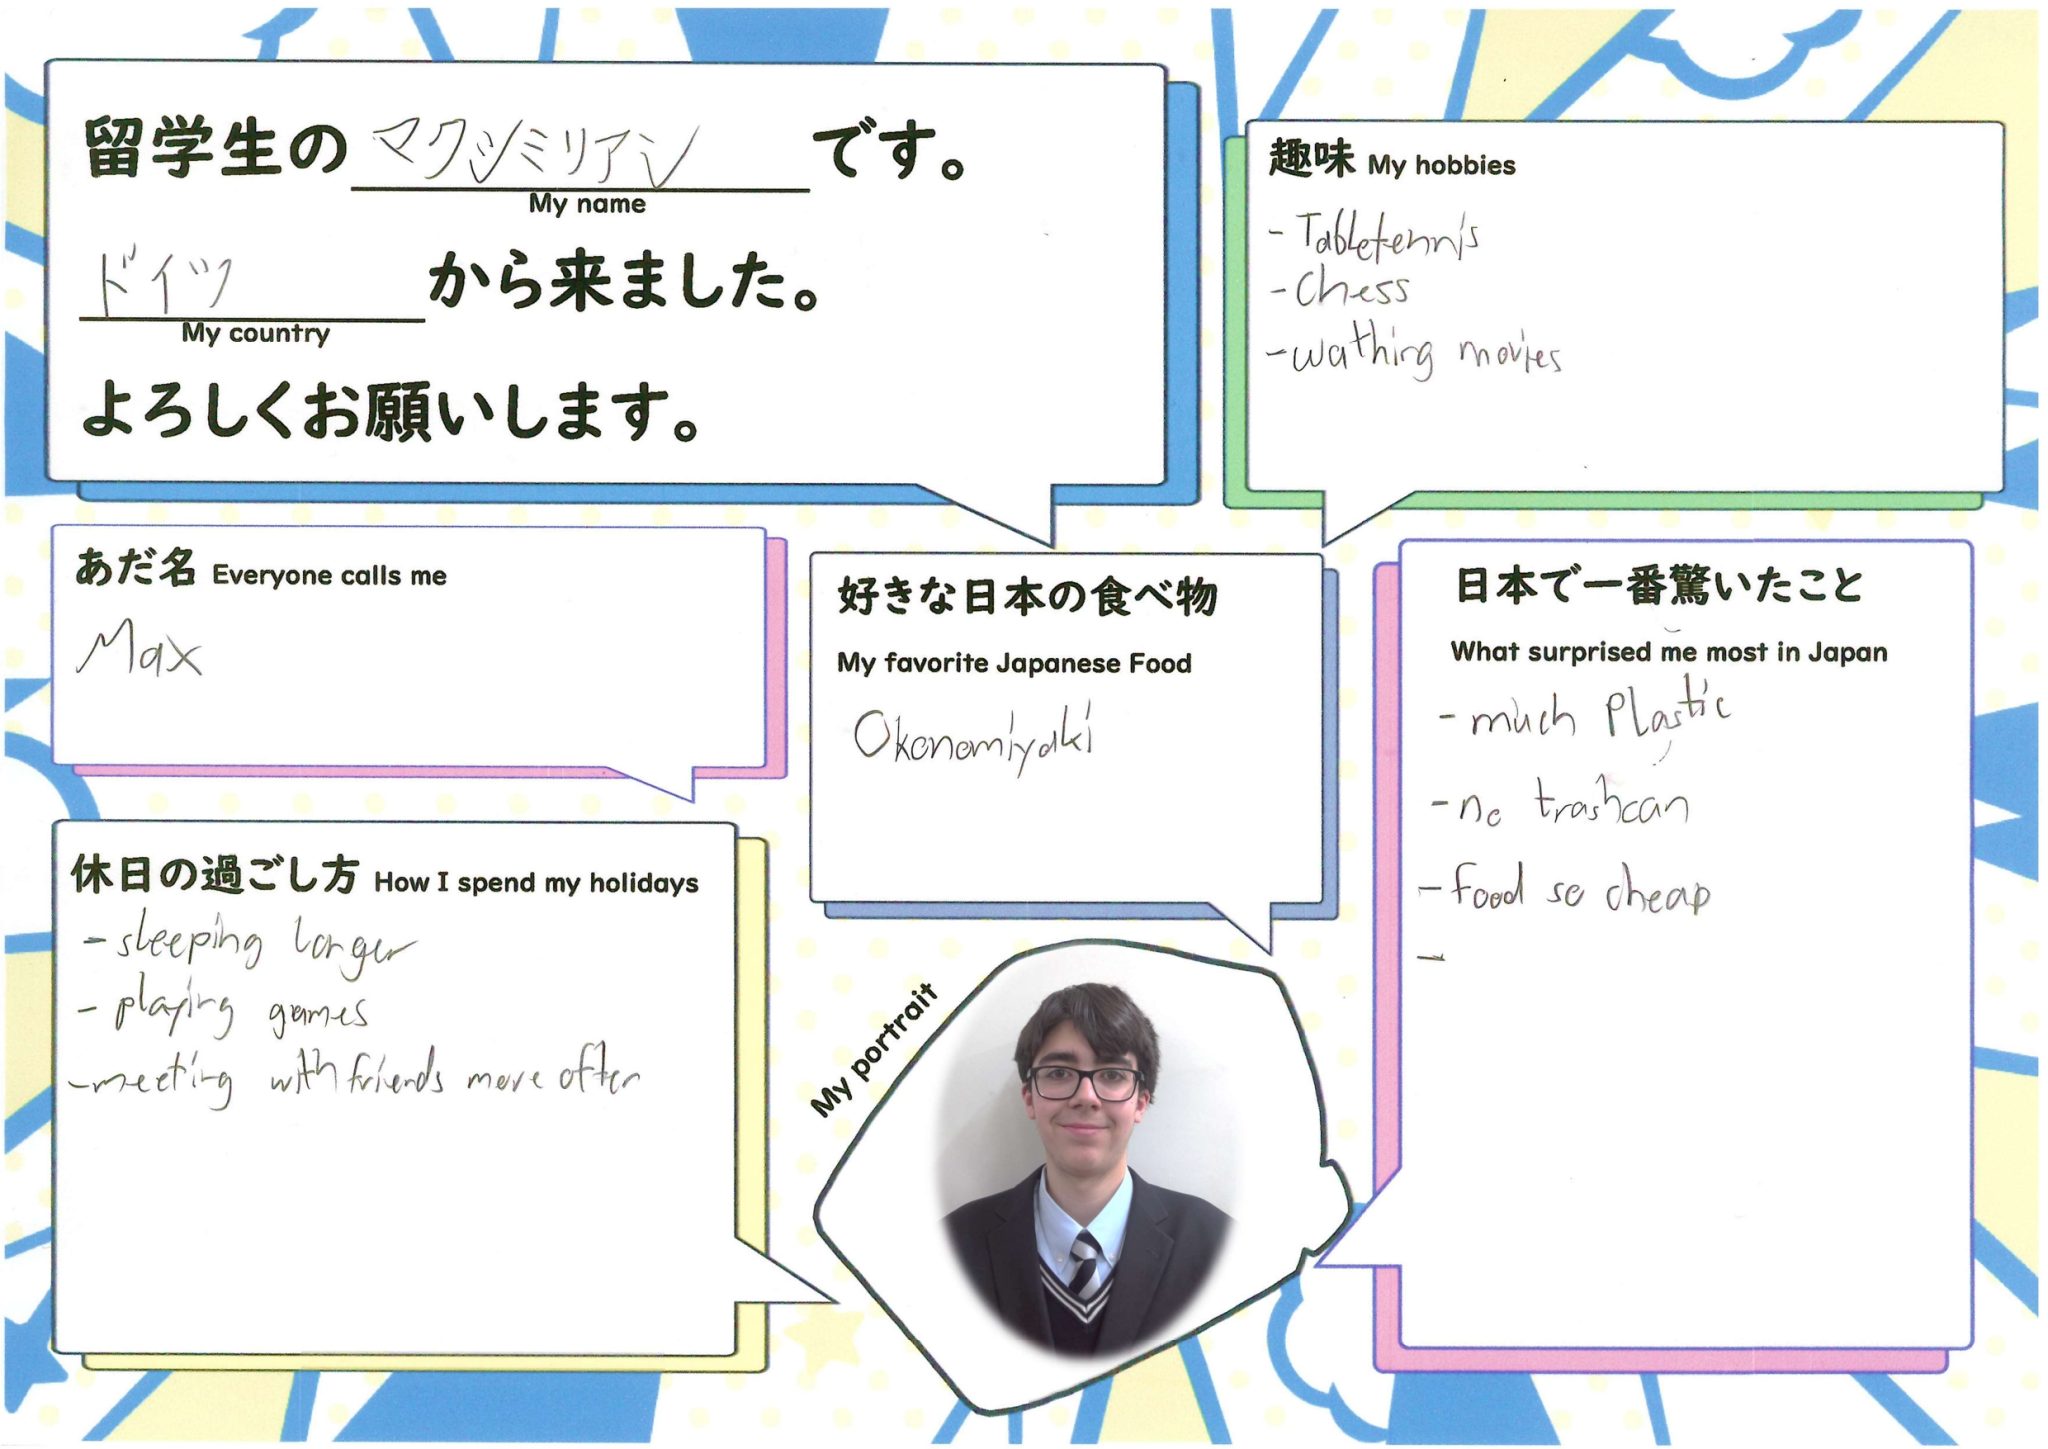 留学生の マクシミリアン です。
My name
ドイツ から来ました。
My country
よろしくお願いします。
趣味 My hobbies
- Tabletennis
- Chess
- wathing movies
あだ名 Everyone calls me
Max
好きな日本の食べ物
My favorite Japanese Food
Okonomiyaki
日本で一番驚いたこと
What surprised me most in Japan
- much Plastic
- no trashcan
- food so cheap
-
休日の過ごし方 How I spend my holidays
- sleeping longer
- playing games
- meeting with friends more often
My portrait